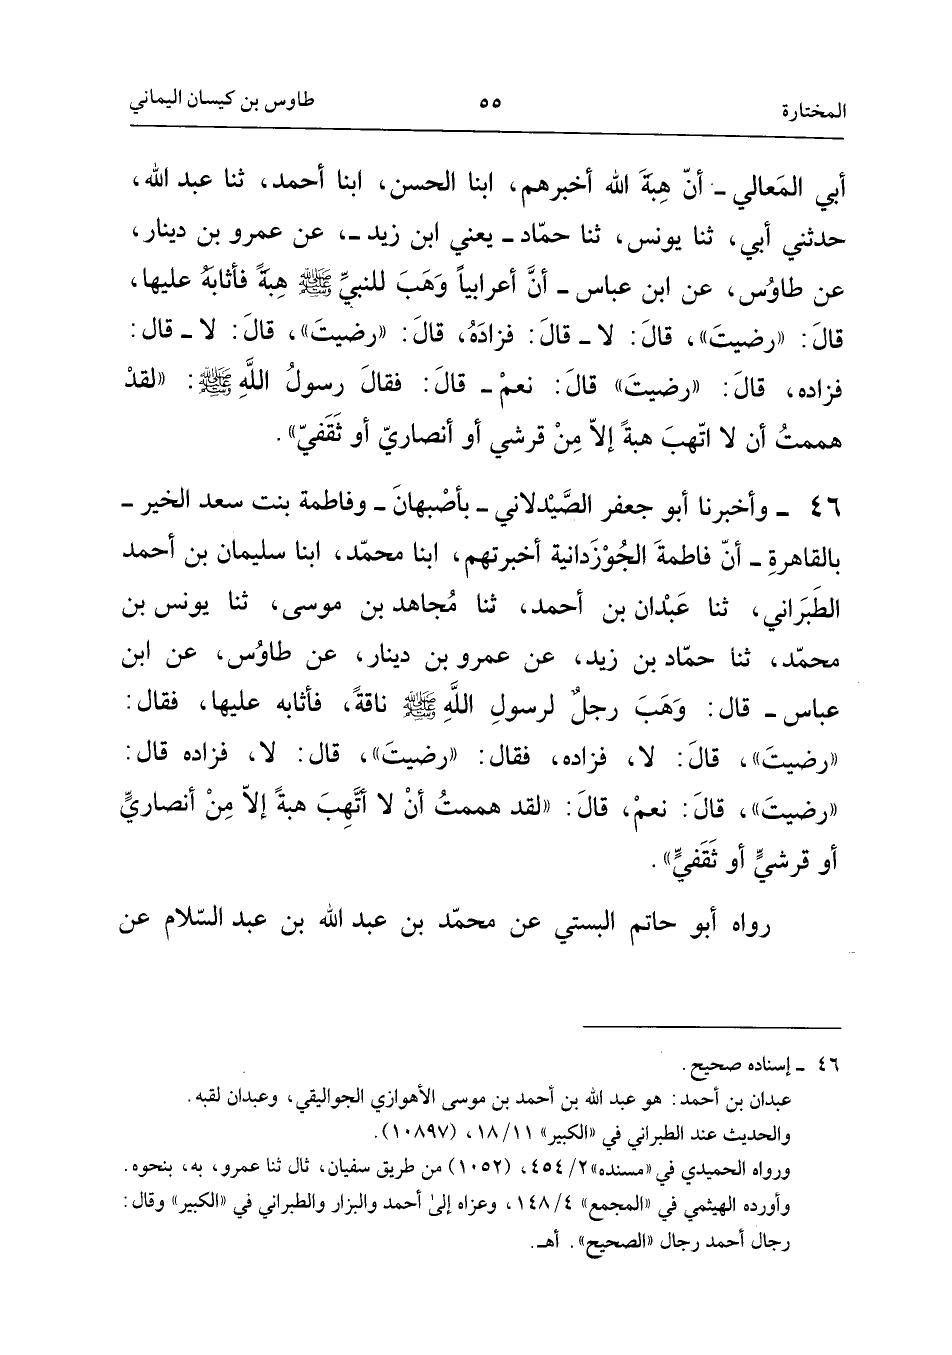 المختارة ٥٥ طاوس بن كيسان اليماني
أبي المَعالي - أنّ هِبَةَ الله أخبرهم، ابنا الحسن، ابنا أحمد، ثنا عبد الله،
حدثني أبي، ثنا يونس، ثنا حمّاد - يعني ابن زيد -، عن عمرو بن دينار،
عن طاوُس، عن ابن عباس - أنَّ أعرابياً وَهَبَ للنبيِّ ﷺ هِبَةً فأثابَهُ عليها،
قالَ: «رضيتَ»، قالَ: لا - قالَ: فزادَهُ، قالَ: «رضيتَ»، قالَ: لا - قال:
فزاده، قالَ: «رضيتَ» قالَ: نعمْ - قالَ: فقالَ رسولُ اللَّهِ ﷺ: «لقدْ
هممتُ أن لا اتّهبَ هبةً إلاّ مِنْ قرشي أو أنصاريّ أو ثَقَفيّ».
٤٦ - وأخبرنا أبو جعفر الصَّيْدلاني - بأصْبهانَ - وفاطمة بنت سعد الخير -
بالقاهرةِ - أنّ فاطمةَ الجُوْزَدانية أخبرتهم، ابنا محمّد، ابنا سليمان بن أحمد
الطَبَراني، ثنا عَبْدْان بن أحمد، ثنا مُجاهد بن موسى، ثنا يونس بن
محمّد، ثنا حمّاد بن زيد، عن عمرو بن دينار، عن طاوُس، عن ابن
عباس - قال: وَهَبَ رجلٌ لرسولِ اللَّهِ ﷺ ناقةً، فأثابه عليها، فقال:
«رضيتَ»، قالَ: لا، فزاده، فقال: «رضيتَ»، قال: لا، فزاده قال:
«رضيتَ»، قالَ: نعمْ، قالَ: «لقد هممتُ أنْ لا أتَّهِبَ هبةً إلاّ مِنْ أنصاريٍّ
أو قرشيٍّ أو ثَقَفيٍّ».
رواه أبو حاتم البستي عن محمّد بن عبد الله بن عبد السّلام عن
٤٦ - إسناده صحيح.
عبدان بن أحمد: هو عبد الله بن أحمد بن موسى الأهوازي الجواليقي، وعبدان لقبه.
والحديث عند الطبراني في «الكبير» ١٨/١١، (١٠٨٩٧).
ورواه الحميدي في «مسنده» ٢/ ٤٥٤، (١٠٥٢) من طريق سفيان، ثال ثنا عمرو، به، بنحوه.
وأورده الهيثمي في «المجمع» ١٤٨/٤، وعزاه إلىٰ أحمد والبزار والطبراني في «الكبير» وقال:
رجال أحمد رجال «الصحيح». أهـ.